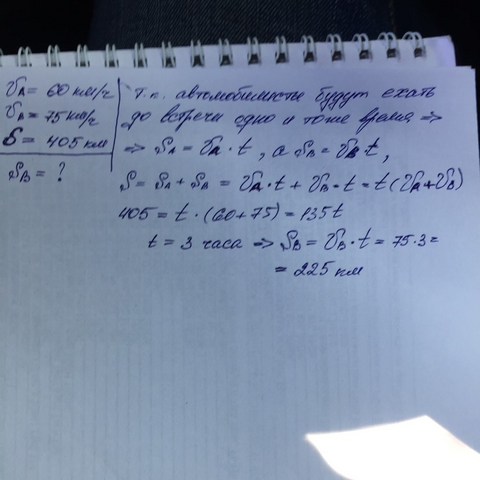 υA = 60 км/ч
υA = 75 км/ч
S = 405 км
SB = ?
Т.к. автомобилисты будут ехать
до встречи одно и тоже время =>
=> SA = υA · t, а SB = υB t,
S = SA + SB = υA · t + υB · t = t(υA + υB)
405 = t · (60 + 75) = 135t
t = 3 часа => SB = υB · t = 75 · 3 =
= 225 км